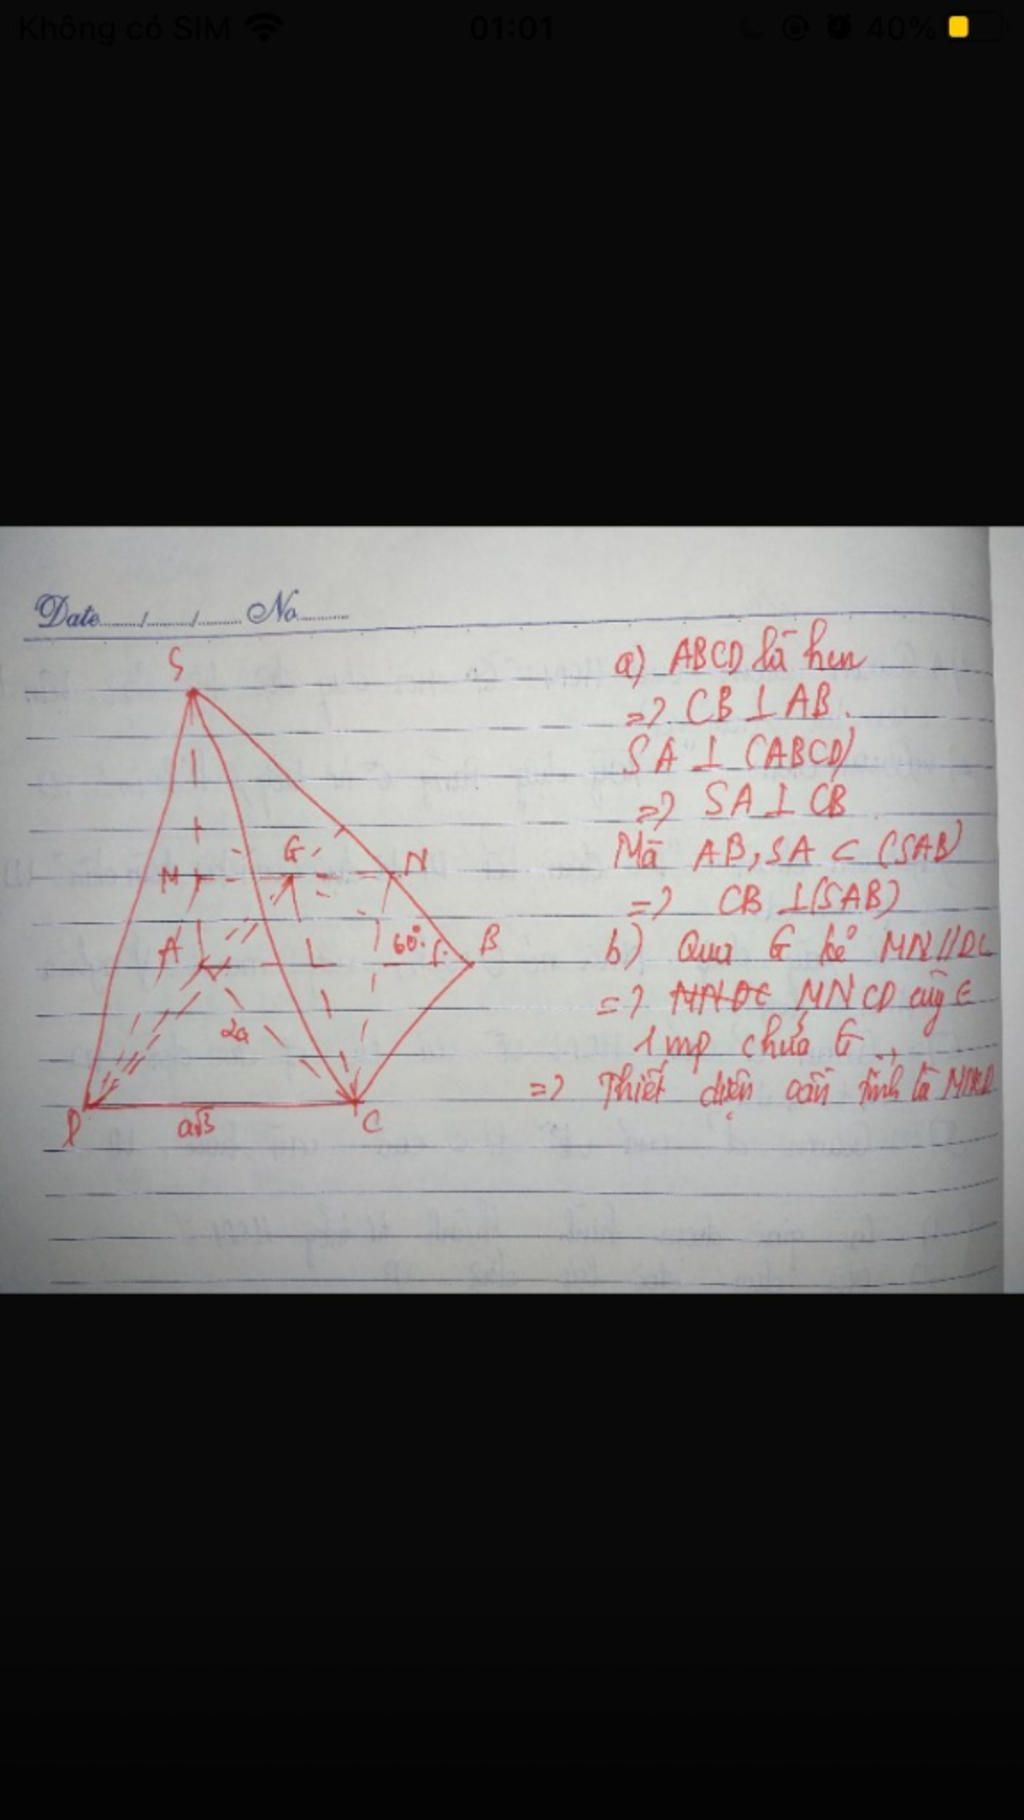 Không có SIM 01:01 40%
Date......./......./....... No...........
S
a) ABCD là hcn
=> CB ⊥ AB.
SA ⊥ (ABCD)
=> SA ⊥ CB
G
M N
Mà AB, SA ⊂ (SAB)
=> CB ⊥ (SAB)
A 60° B
b) Qua G kẻ MN // DC
=> MNDC MNCD cùng ∈
2a
1 mp chứa G
=> Thiết diện cần tính là MNCD
D a√3 C